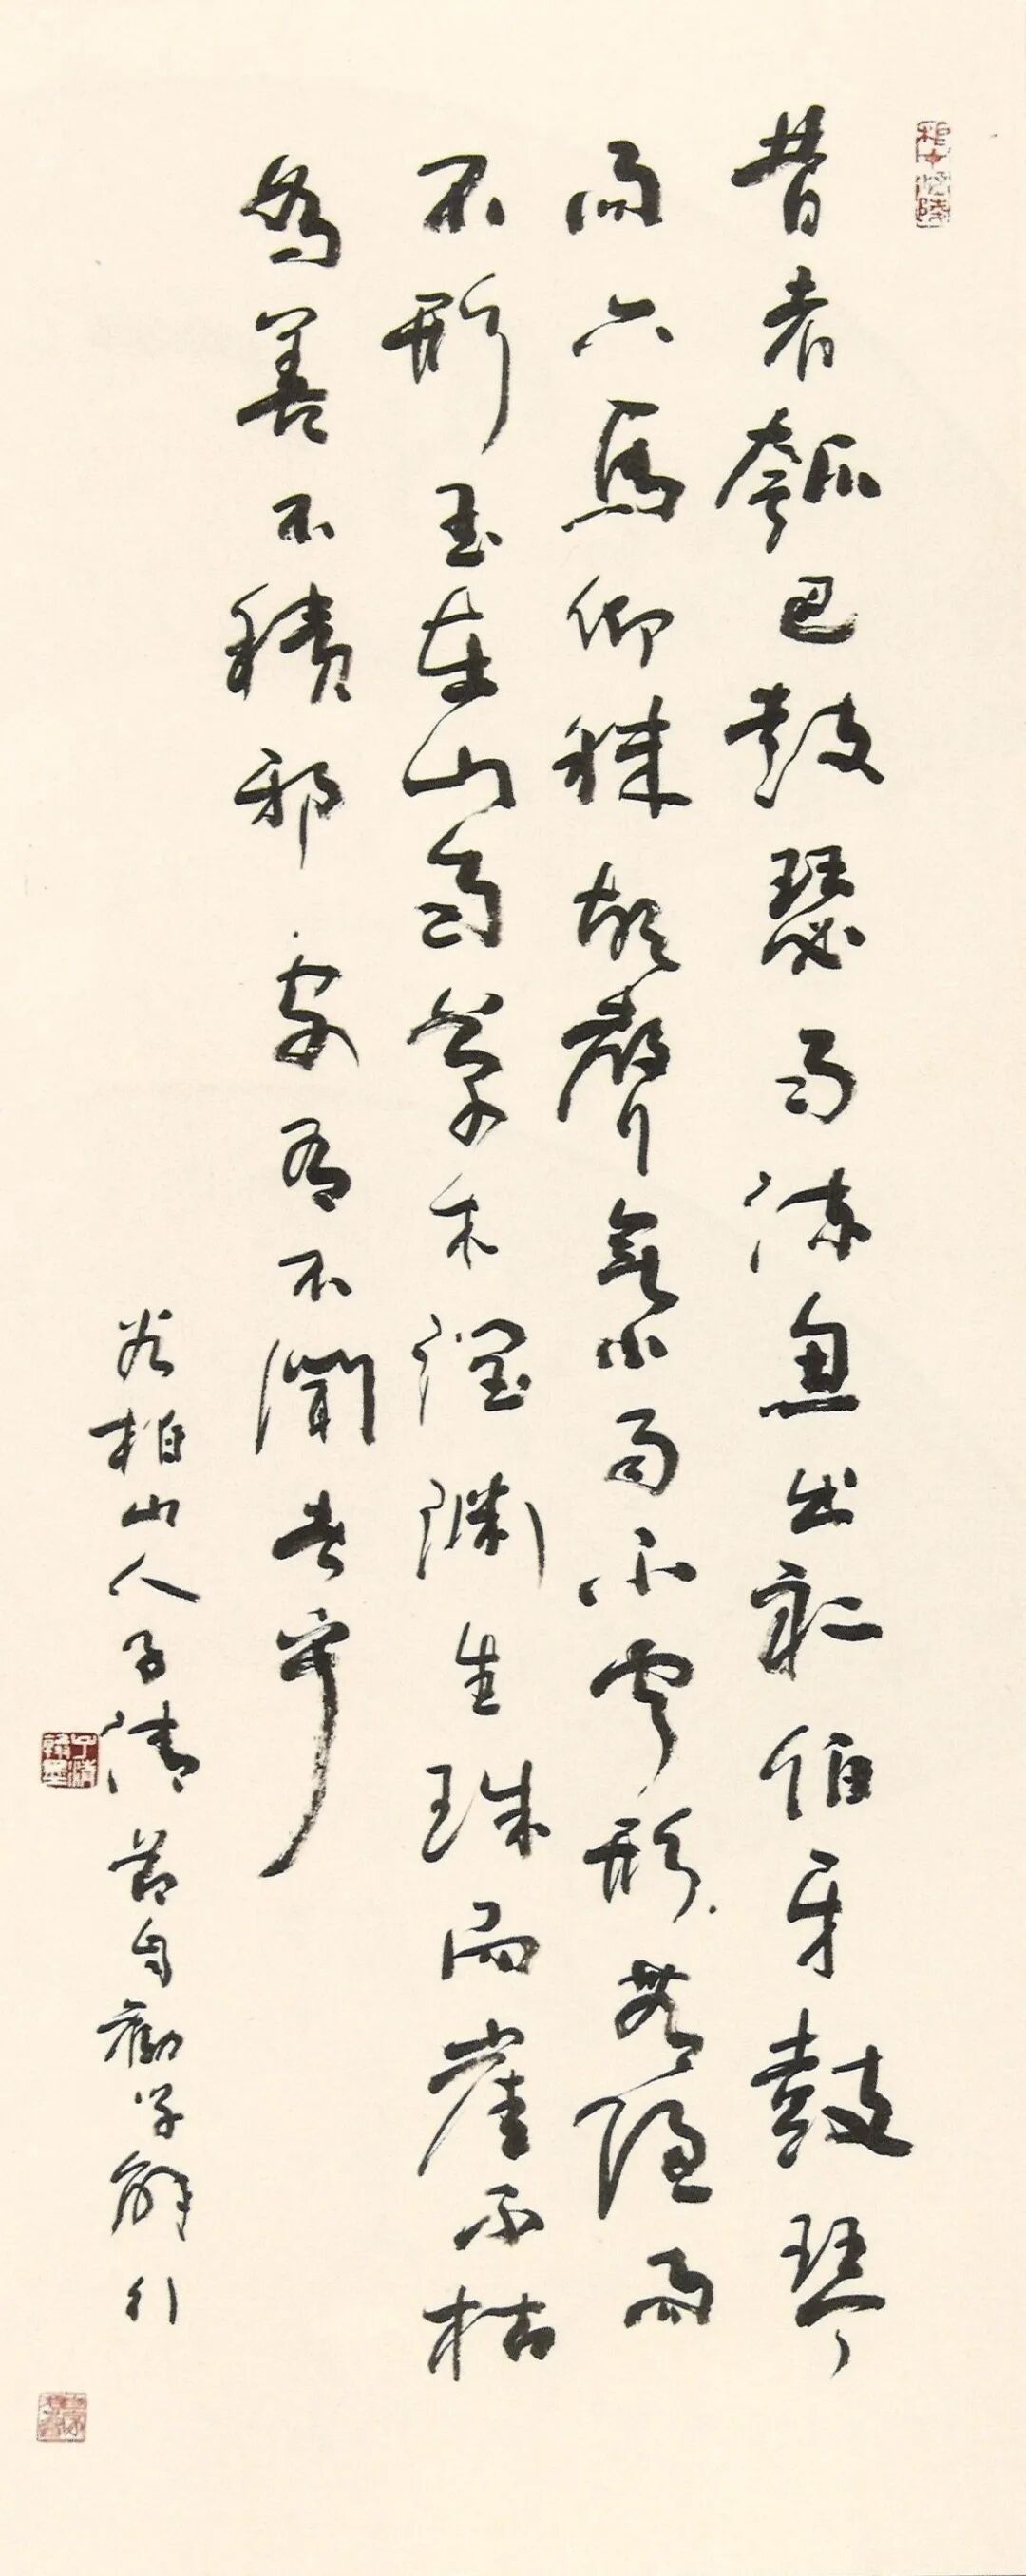 昔者瓠巴鼓瑟而流魚出聽伯牙鼓琴
而六馬仰秣故聲無小而不聞形無隱而
不形玉在山而草木潤淵生珠而崖不枯
為善不積邪安有不聞者乎
柏山人子清節自勸學
子清翰墨